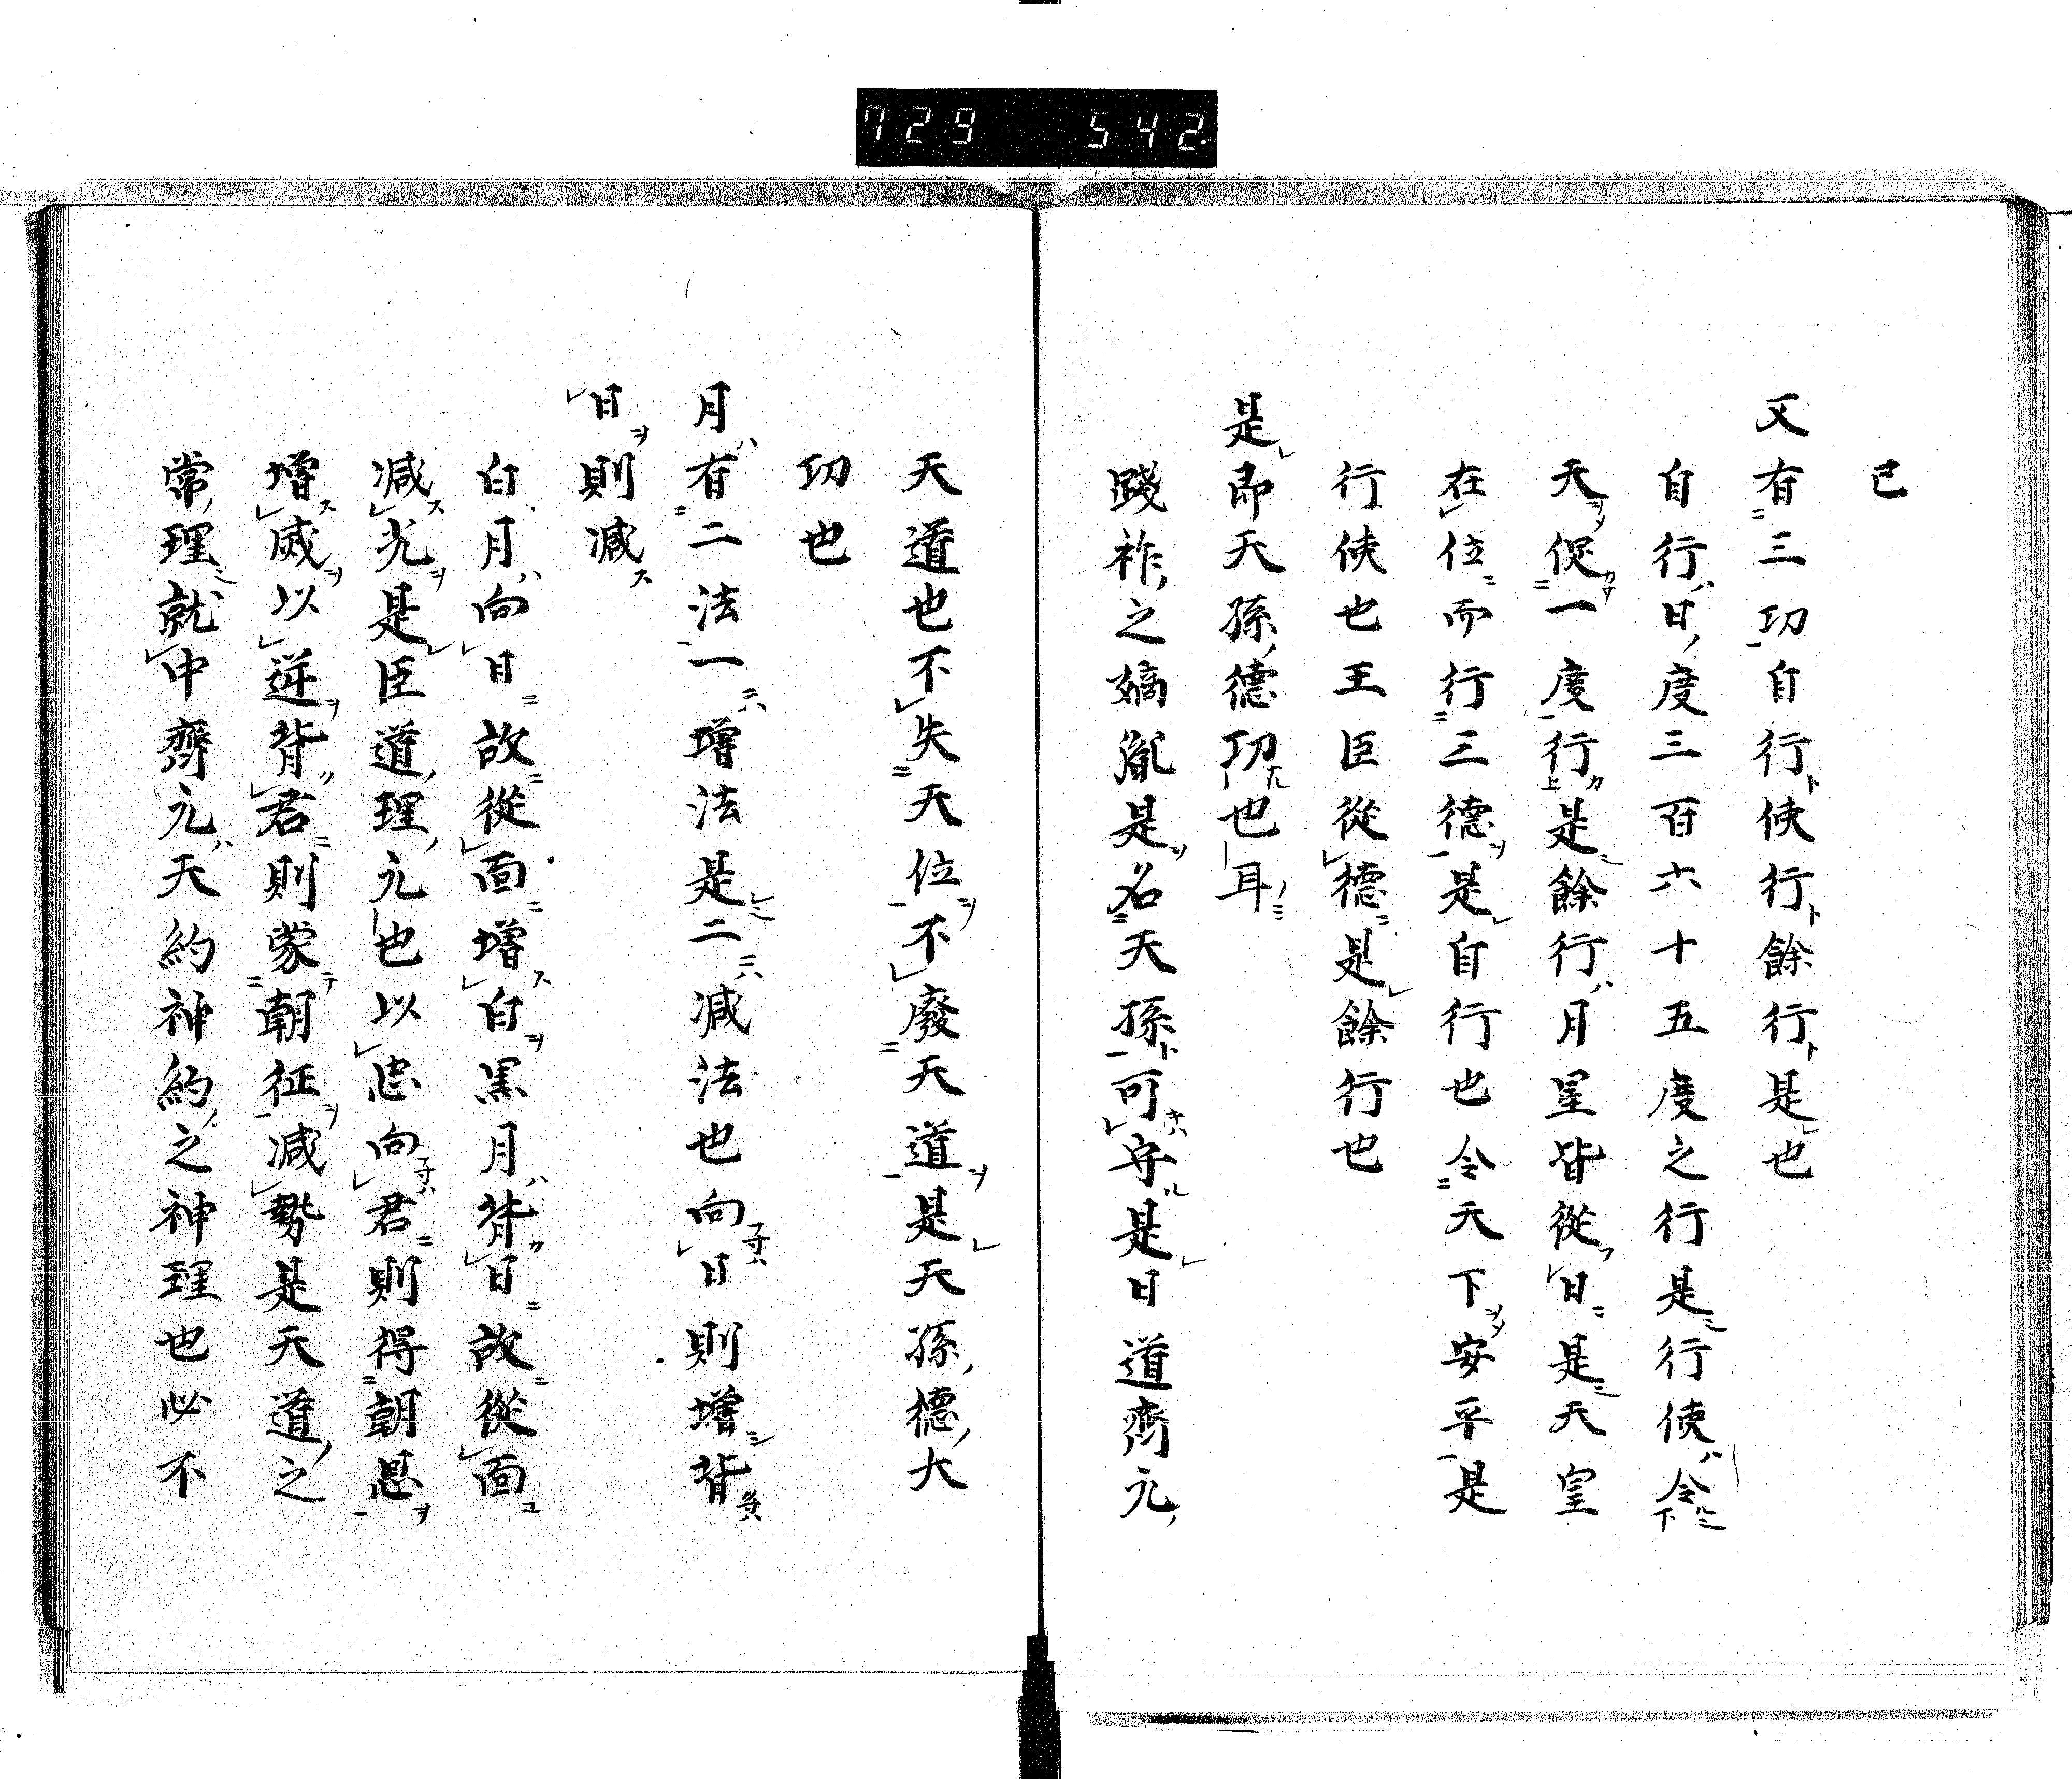 729 542.
已
又有三功自行使行餘行是也
自行日度三百六十五度之行是行使令
天促一度行是餘行月星皆從日是天皇
在位而行三德是自行也令天下安平是
行使也王臣從德是餘行也
是即天孫德功也耳
踐祚之嫡胤是名天孫可守是日道齊元
天道也不失天位不廢天道是天孫德大
功也
月有二法一增法是二減法也向日則增背
日則減
白月向日故從面增白黒月背日故從面
減光是臣道理元也以忠向君則得朝恩
增威以逆背君則蒙朝征減勢是天道之
常理就中齊元天約神約之神理也必不